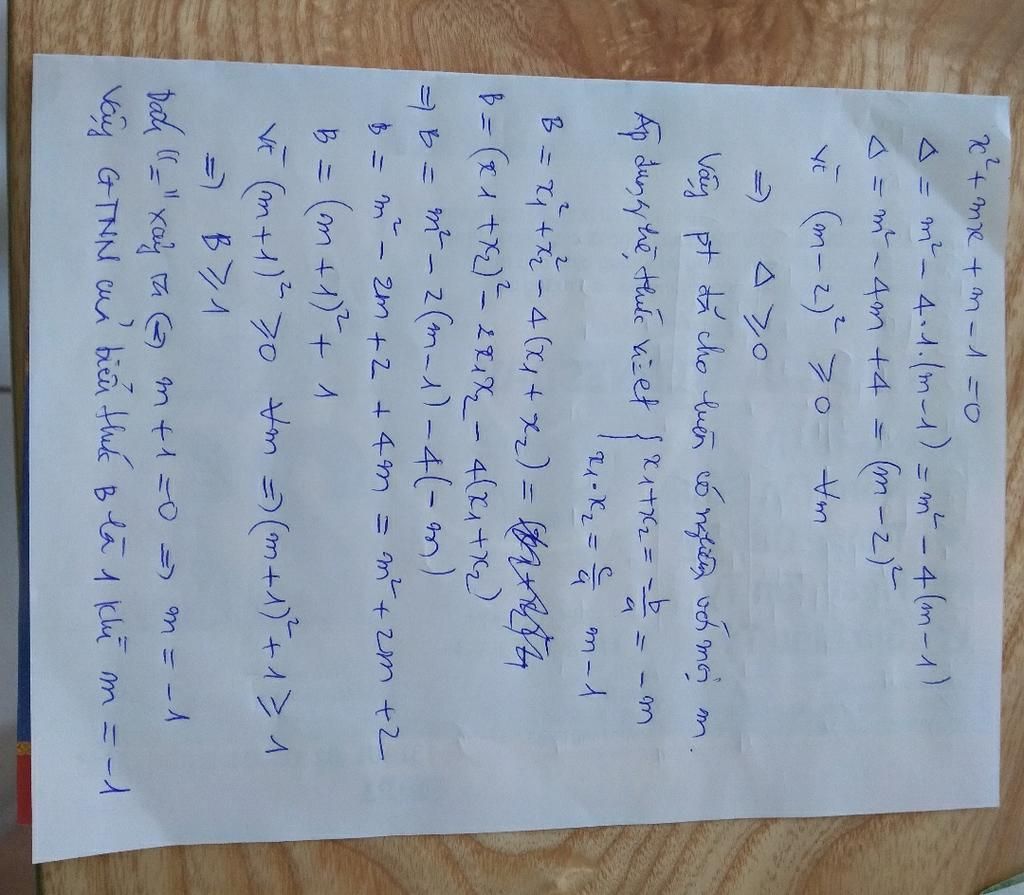 x² + mx + m - 1 = 0
Δ = m² - 4.1.(m-1) = m² - 4(m-1)
Δ = m² - 4m + 4 = (m-2)²
Vì (m-2)² ≥ 0 ∀m
=> Δ ≥ 0
Vậy pt đã cho luôn có nghiệm với mọi m.
Áp dụng hệ thức vi-et { x1+x2 = -b/a = -m
x1.x2 = c/a m-1
B = x1² + x2² - 4(x1 + x2) =
B = (x1 + x2)² - 2x1x2 - 4(x1+x2)
=> B = m² - 2(m-1) - 4(-m)
B = m² - 2m + 2 + 4m = m² + 2m + 2
B = (m+1)² + 1
Vì (m+1)² ≥ 0 ∀m => (m+1)² + 1 ≥ 1
=> B ≥ 1
Dấu "=" xảy ra <=> m + 1 = 0 => m = -1
Vậy GTNN của biểu thức B là 1 khi m = -1